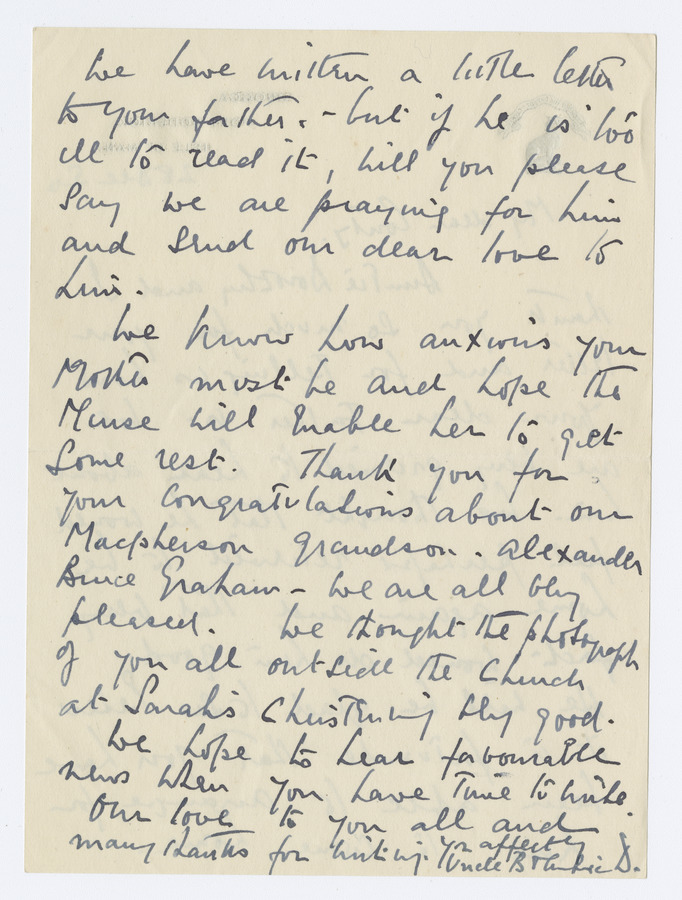 We have written a little letter
to your father. - but if he is too
ill to read it, will you please
say we are praying for him
and send our dear love to
him.
We know how anxious your
Mother must be and hope the
Nurse will enable her to get
some rest. Thank you for
your congratulations about our
Macpherson grandson. Alexander
Bruce Graham - we are all vby
pleased. We thought the photograph
of you all outside the Church
at Sarah's Christening vby good.
We hope to hear favourable
news when you have time to write.
Our love to you all and
many thanks for writing. Yr affectly
Uncle B & Auntie D.